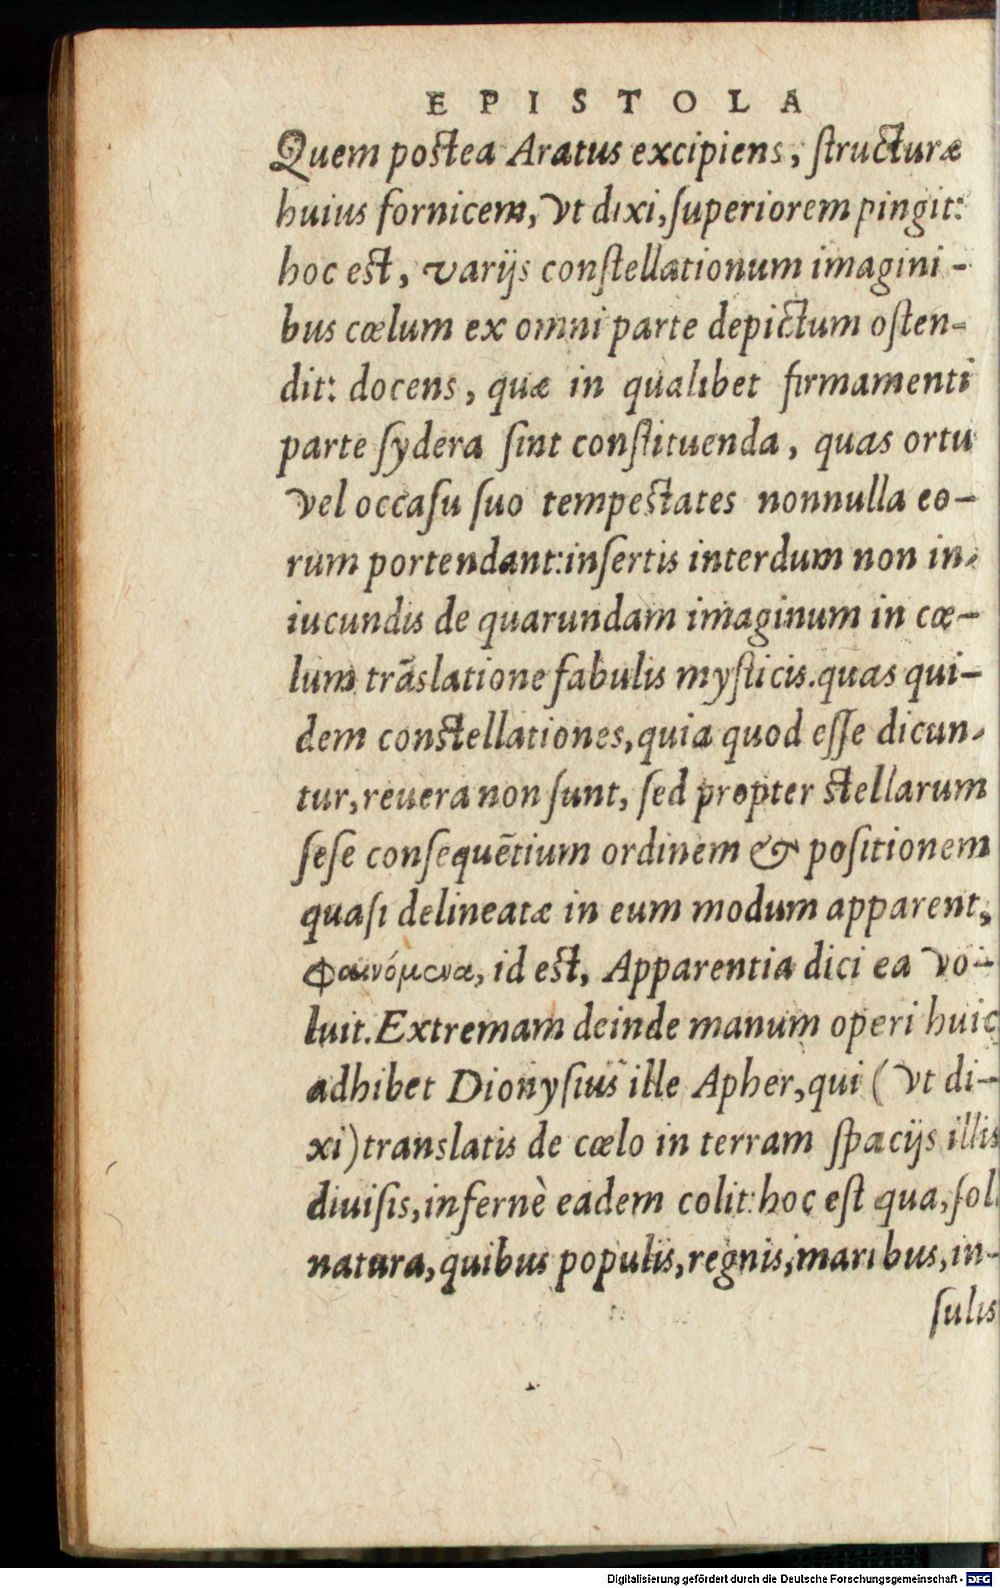 EPISTOLA
Quem postea Aratus excipiens, ſtructuræ
huius fornicem, vt dixi, ſuperiorem pingit:
hoc est, varijs conſtellationum imagini-
bus cœlum ex omni parte depictum oſten-
dit: docens, quæ in qualibet firmamenti
parte ſydera ſint conſtituenda, quas ortu
vel occaſu ſuo tempestates nonnulla eo-
rum portendant: inſertis interdum non in-
iucundis de quarundam imaginum in cœ-
lum trāslatione fabulis myſticis. quas qui-
dem constellationes, quia quod eſſe dicun-
tur, reuera non ſunt, ſed propter stellarum
ſeſe conſequētium ordinem & poſitionem
quaſi delineatæ in eum modum apparent,
Φαινόμενα, id est, Apparentia dici ea vo-
luit. Extremam deinde manum operi huic
adhibet Dionyſius ille Apher, qui (vt di-
xi) translatis de cœlo in terram ſpacijs illis
diuiſis, infernè eadem colit: hoc eſt qua, ſoli
natura, quibus populis, regnis, maribus, in-
ſulis
Digitalisierung gefördert durch die Deutsche Forschungsgemeinschaft - DFG